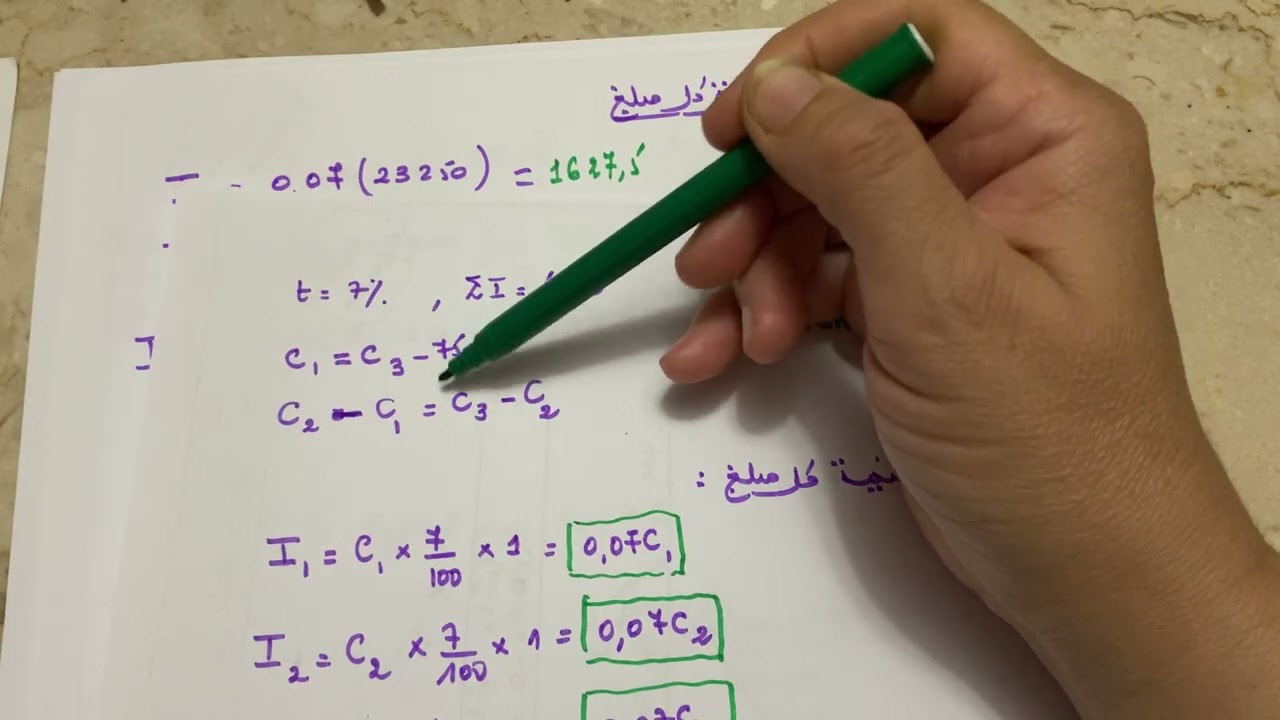 كل مبلغ
0.07 (23250) = 1627,5
t = 7% , ΣI =
C₁ = C₃ - 75
C₂ - C₁ = C₃ - C₂
كل مبلغ :
I₁ = C₁ × 7/100 × 1 = 0,07C₁
I₂ = C₂ × 7/100 × 1 = 0,07C₂